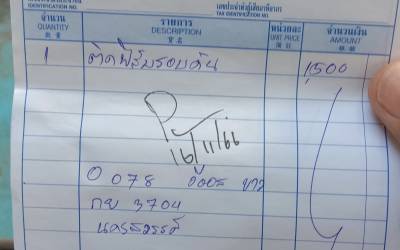 เลขประจำตัวผู้เสียภาษีอากร
IDENTIFICATION NO. TAX IDENTIFICATION NO.
จำนวน รายการ หน่วยละ จำนวนเงิน
QUANTITY DESCRIPTION UNIT PRICE AMOUNT
1 ติดฟิล์มรอบคัน 1,500
16/11/66
078
กย 3704
นครสวรรค์